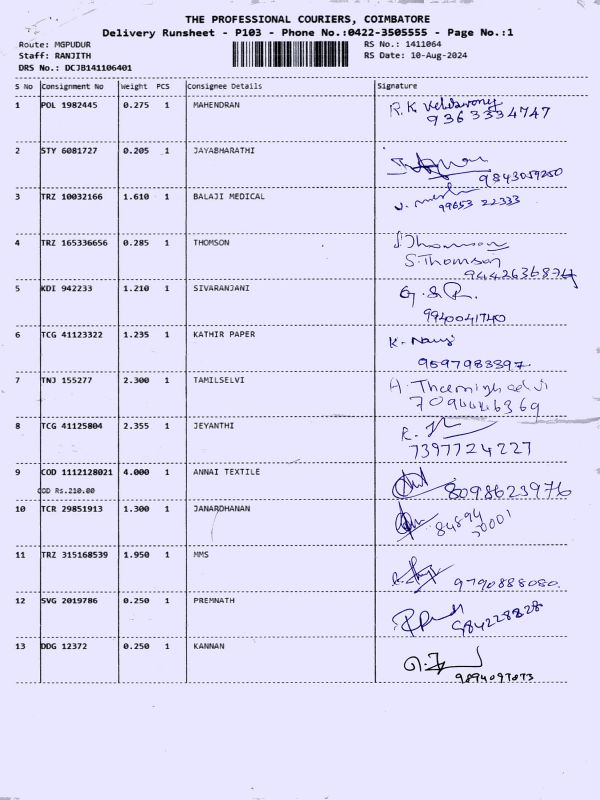 THE PROFESSIONAL COURIERS, COIMBATORE
Delivery Runsheet - P103 - Phone No.:0422-3505555 - Page No.:1
Route: MGPUDUR RS No.: 1411064
Staff: RANJITH RS Date: 10-Aug-2024
DRS No.: DCJB141106401
S No Consignment No Weight PCS Consignee Details Signature
1 POL 1982445 0.275 1 MAHENDRAN R.K
9363334747
2 STY 6081727 0.205 1 JAYABHARATHI
9843059250
3 TRZ 10032166 1.610 1 BALAJI MEDICAL
99653 22333
4 TRZ 165336656 0.285 1 THOMSON S.Thomson
S.Thomson
9442636874
5 KDI 942233 1.210 1 SIVARANJANI
9940041740
6 TCG 41123322 1.235 1 KATHIR PAPER K.
9597983397
7 TNJ 155277 2.300 1 TAMILSELVI A.
7094446369
8 TCG 41125804 2.355 1 JEYANTHI R.
7397724227
9 COD 1112128021 4.000 1 ANNAI TEXTILE
COD Rs.210.00 8098623976
10 TCR 29851913 1.300 1 JANARDHANAN 84894
11 TRZ 315168539 1.950 1 MMS
9790888080.
12 SVG 2019786 0.250 1 PREMNATH
984228828
13 DDG 12372 0.250 1 KANNAN
9894097873